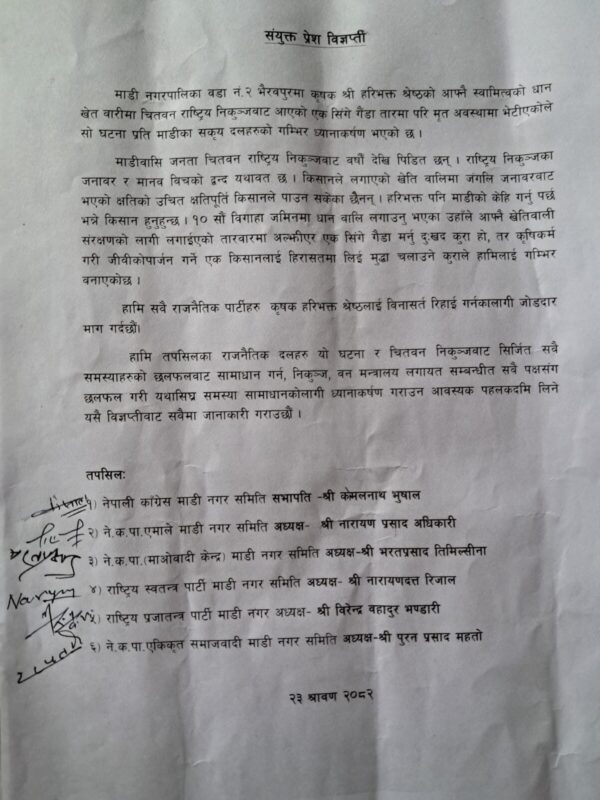 संयुक्त प्रेश विज्ञप्ती
माडी नगरपालिका वडा नं.२ भैरवपुरमा कृषक श्री हरिभक्त श्रेष्ठको आफ्नै स्वामित्वको धान
खेत वारीमा चितवन राष्ट्रिय निकुञ्जवाट आएको एक सिंगे गैंडा तारमा परि मृत अवस्थामा भेटीएकोले
सो घटना प्रति माडीका सकृय दलहरुको गम्भिर ध्यानाकर्षण भएको छ ।
माडीवासि जनता चितवन राष्ट्रिय निकुञ्जवाट वर्षौ देखि पिडित छन् । राष्ट्रिय निकुञ्जका
जनावर र मानव विचको द्वन्द यथावत छ । किसानले लगाएको खेति वालिमा जंगलि जनावरवाट
भएको क्षतिको उचित क्षतिपूर्ति किसानले पाउन सकेका छैनन् । हरिभक्त पनि माडीको केहि गर्नु पर्छ
भन्ने किसान हुनुहुन्छ । १० सौं विगाहा जमिनमा धान वालि लगाउनु भएका उहाँले आफ्नै खेतिवाली
संरक्षणको लागी लगाईएको तारवारमा अल्झीएर एक सिंगे गैडा मर्नु दुःखद कुरा हो, तर कृषिकर्म
गरी जीवीकोपार्जन गर्ने एक किसानलाई हिरासतमा लिई मुद्धा चलाउने कुराले हामिलाई गम्भिर
वनाएकोछ ।
हामि सवै राजनैतिक पार्टीहरु कृषक हरिभक्त श्रेष्ठलाई विनासर्त रिहाई गर्नकालागी जोडदार
माग गर्दछौं।
हामि तपसिलका राजनैतिक दलहरु यो घटना र चितवन निकुञ्जवाट सिर्जित सवै
समस्याहरुको छलफलवाट सामाधान गर्न, निकुञ्ज, वन मन्त्रालय लगायत सम्बन्धीत सवै पक्षसंग
छलफल गरी यथासिघ्र समस्या सामाधानकोलागी ध्यानाकर्षण गराउन आवस्यक पहलकदमि लिने
यसै विज्ञप्तीवाट सवैमा जानाकारी गराउछौं ।
तपसिलः
१) नेपाली काग्रेस माडी नगर समिति सभापति -श्री केमलनाथ भुषाल
२) ने.क.पा.एमाले माडी नगर समिति अध्यक्ष- श्री नारायण प्रसाद अधिकारी
३) ने.क.पा.(माओवादी केन्द्र) माडी नगर समिति अध्यक्ष-श्री भरतप्रसाद तिमिल्सीना
४) राष्ट्रिय स्वतन्त्र पार्टी माडी नगर समिति अध्यक्ष- श्री नारायणदत्त रिजाल
५) राष्ट्रिय प्रजातन्त्र पार्टी माडी नगर अध्यक्ष- श्री विरेन्द्र वहादुर भण्डारी
६) ने.क.पा.एकिकृत समाजवादी माडी नगर समिति अध्यक्ष-श्री पुरन प्रसाद महतो
२३ श्रावण २०८२